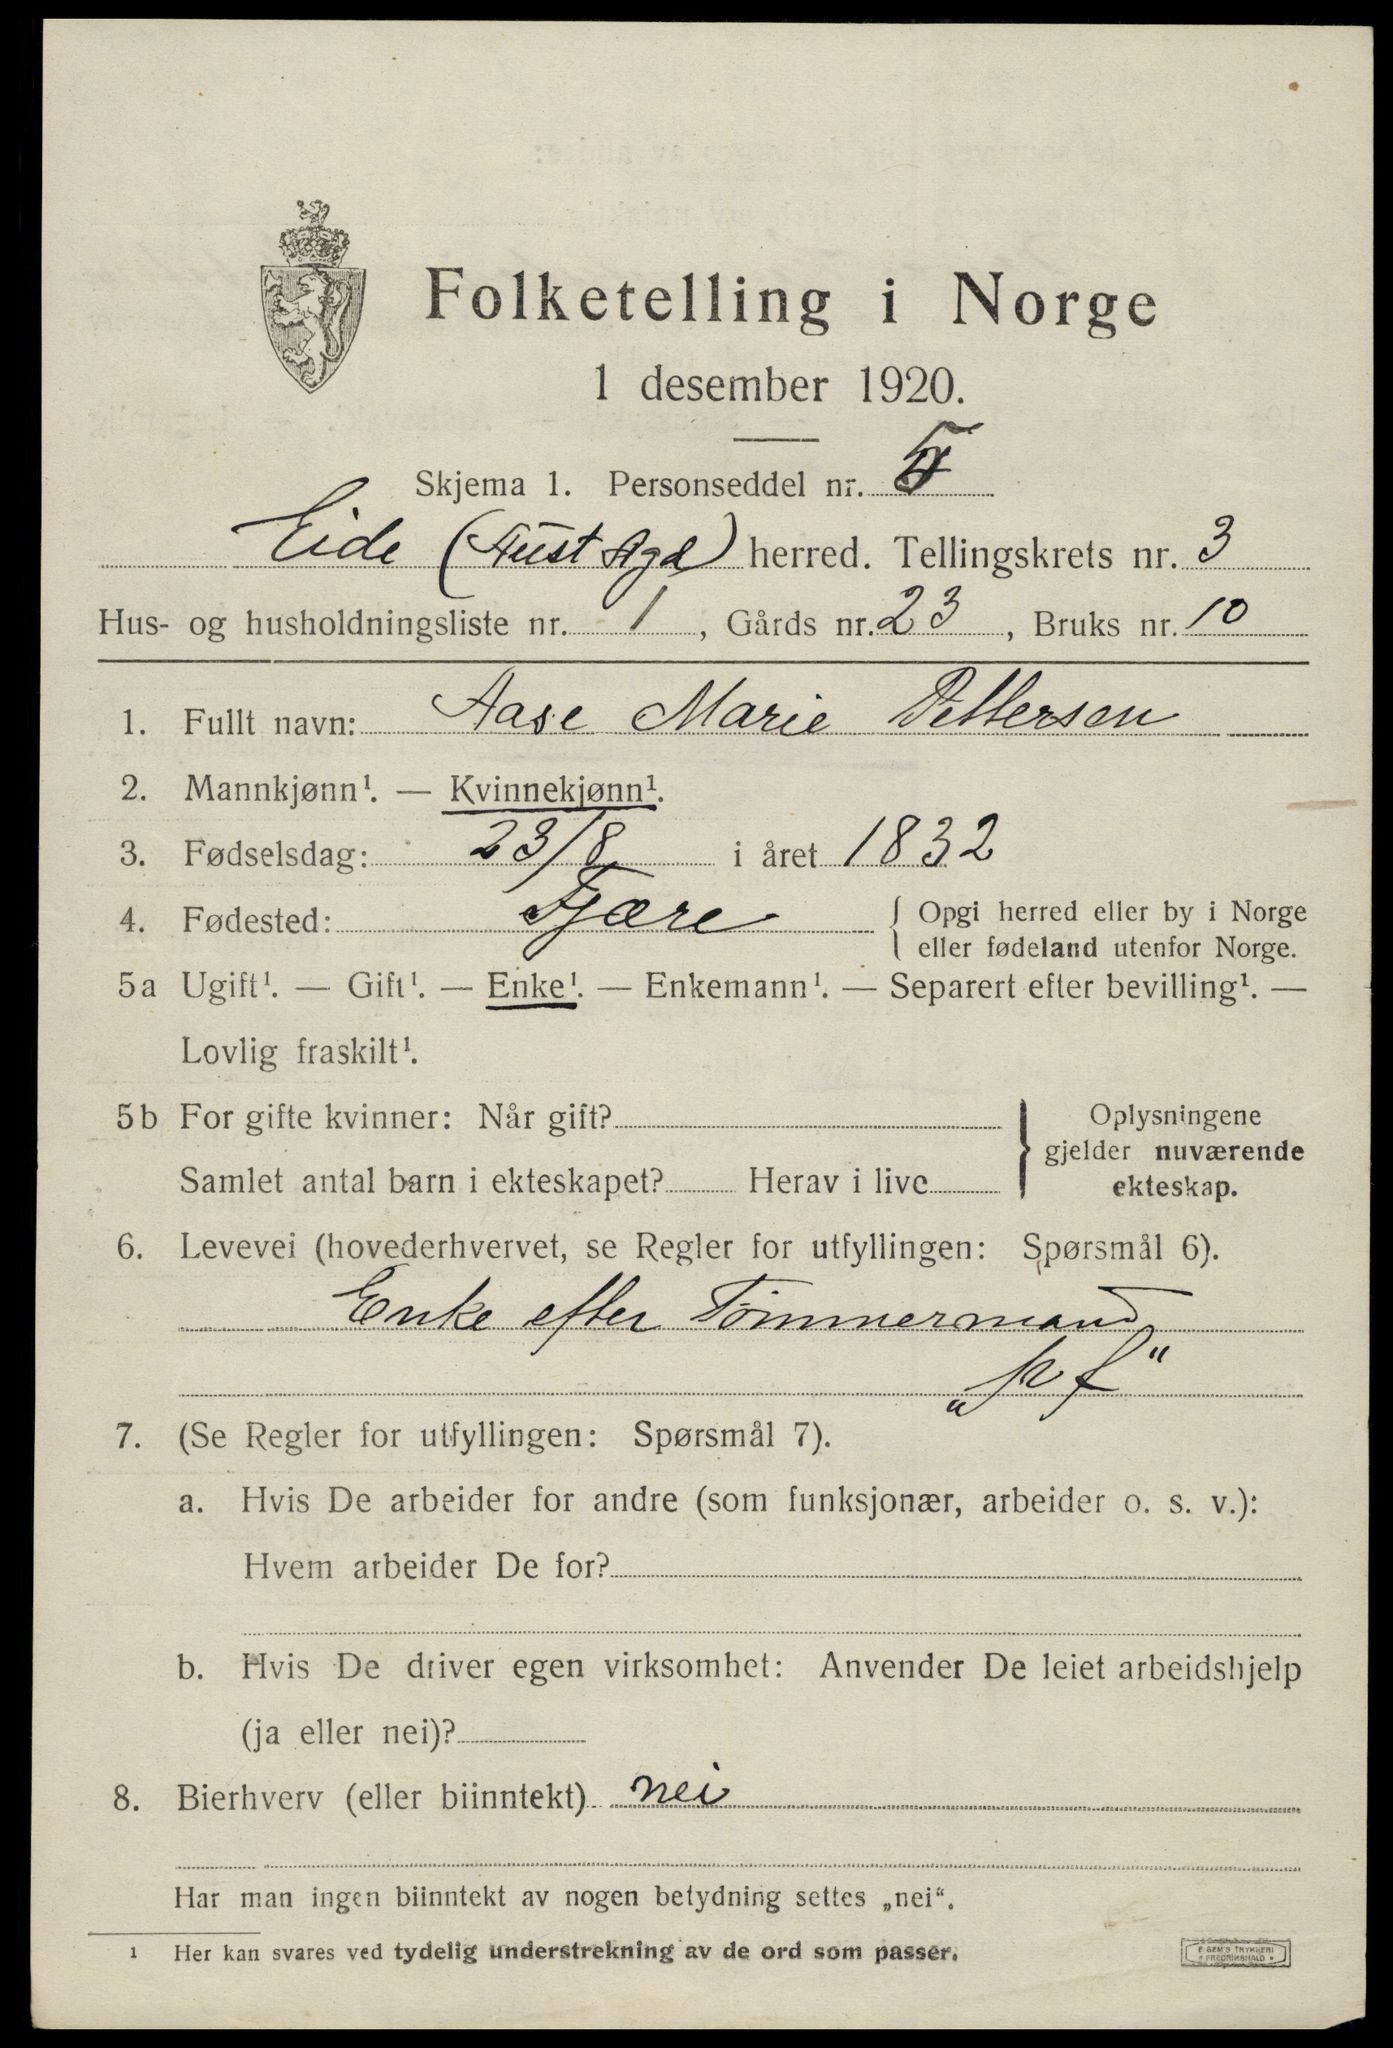 Folketelling i Norge
1 desember 1920.
Skjema 1. Personseddel nr. 5
Eide (Aust Agd) herred. Tellingskrets nr. 3
Hus- og husholdningsliste nr. 1, Gårds nr. 23, Bruks nr. 10
1. Fullt navn: Aase Marie Pettersen
2. Mannkjønn¹. — Kvinnekjønn¹.
3. Fødselsdag: 23/8 i året 1832
4. Fødested: Fjære { Opgi herred eller by i Norge
eller fødeland utenfor Norge.
5a Ugift¹. — Gift¹. — Enke¹. — Enkemann¹. — Separert efter bevilling¹. —
Lovlig fraskilt¹.
5b For gifte kvinner: Når gift?
Samlet antal barn i ekteskapet? Herav i live
} Oplysningene
gjelder nuværende
ekteskap.
6. Levevei (hovederhvervet, se Regler for utfyllingen: Spørsmål 6).
Enke efter Tømmermand
7. (Se Regler for utfyllingen: Spørsmål 7).
a. Hvis De arbeider for andre (som funksjonær, arbeider o. s. v.):
Hvem arbeider De for?
b. Hvis De driver egen virksomhet: Anvender De leiet arbeidshjelp
(ja eller nei)?
8. Bierhverv (eller biinntekt) nei
Har man ingen biinntekt av nogen betydning settes „nei“.
1 Her kan svares ved tydelig understrekning av de ord som passer.